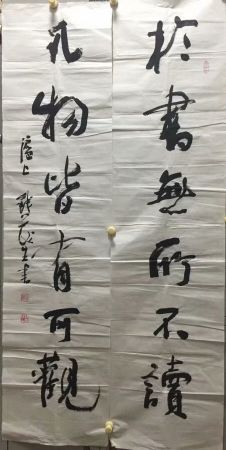 於書無所不讀
凡物皆有可觀
滬上
書